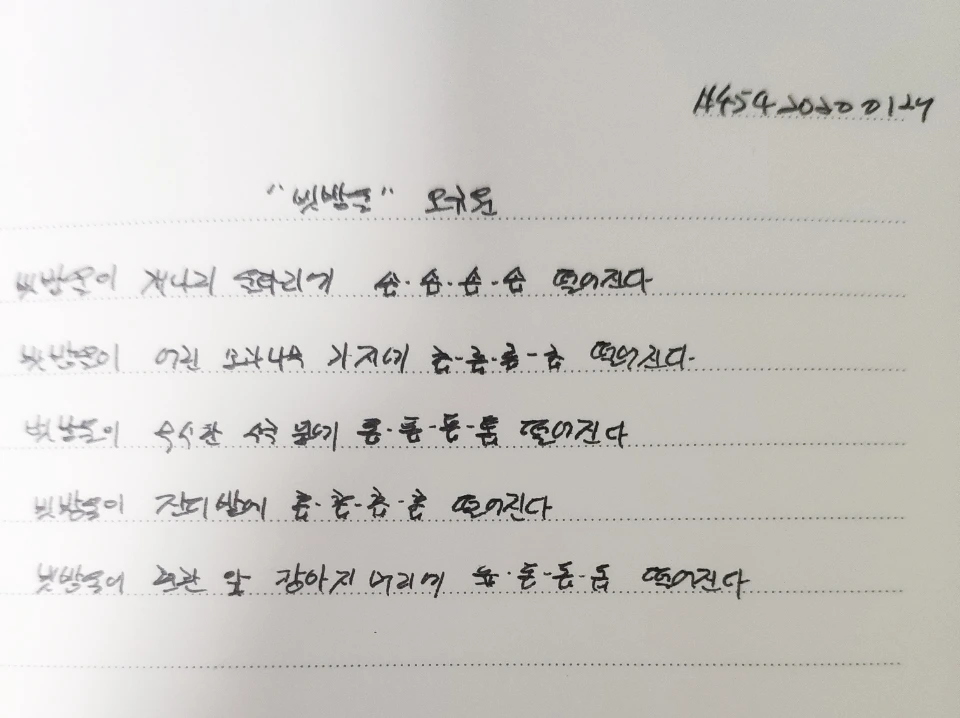 #454 20200124
"빗방울" 오규원
빗방울이 개나리 울타리에 솝-솝-솝-솝 떨어진다
빗방울이 어린 모과나무 가지에 롭-롭-롭-롭 떨어진다
빗방울이 무성한 수국 잎에 톱-톱-톱-톱 떨어진다
빗방울이 잔디밭에 홉-홉-홉-홉 떨어진다
빗방울이 현관 앞 강아지 머리에 돕-돕-돕-돕 떨어진다